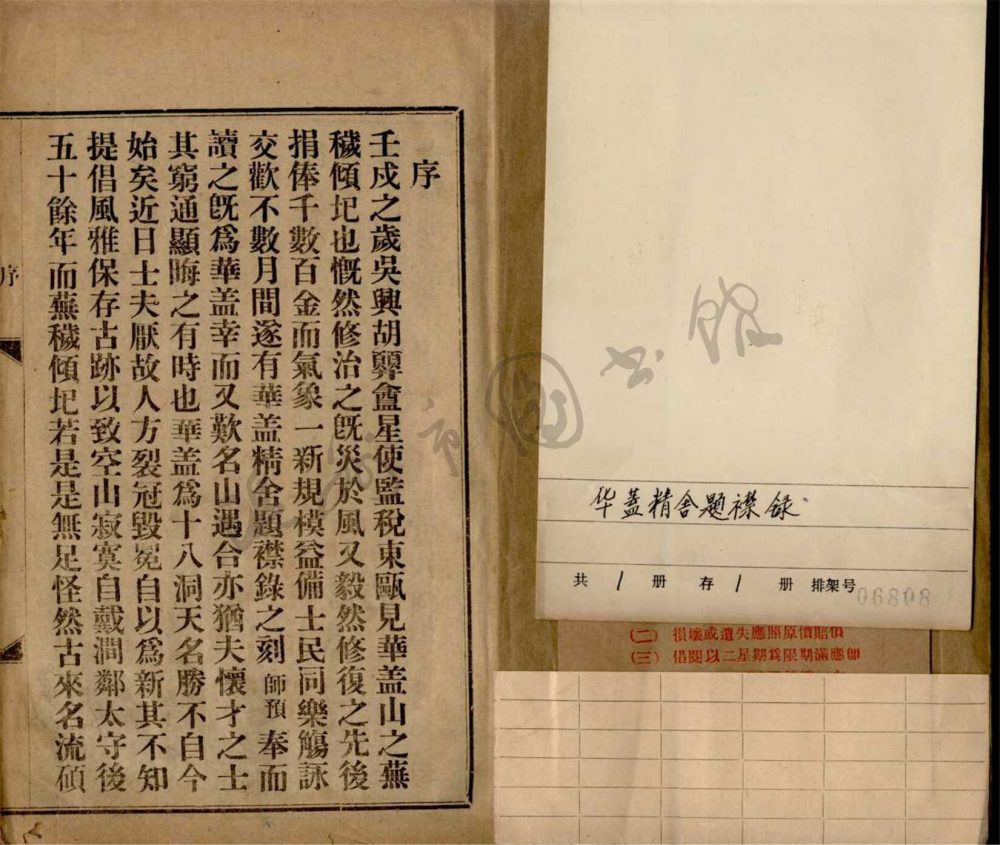 序
壬戌之歲吳興胡㢸盦星使監稅東甌見華盖山之蕪
穢傾圮也慨然修治之既災於風又毅然修復之先後
捐俸千數百金而氣象一新規模益備士民同樂觴詠
交歡不數月間遂有華盖精舍題襟錄之刻師預奉而
讀之既爲華盖幸而又歎名山遇合亦猶夫懷才之士
其窮通顯晦之有時也華盖爲十八洞天名勝不自今
始矣近日士夫厭故人方裂冠毀冕自以爲新其不知
提倡風雅保存古跡以致空山寂寞自戴澗鄰太守後
五十餘年而蕪穢傾圮若是是無足怪然古來名流碩
序
华蓋精舍題襟錄
共 1 册 存 1 册 排架号 06808
(二) 損壞或遺失應照原價賠償
(三) 借閱以二星期爲限期滿應即
市圖書館